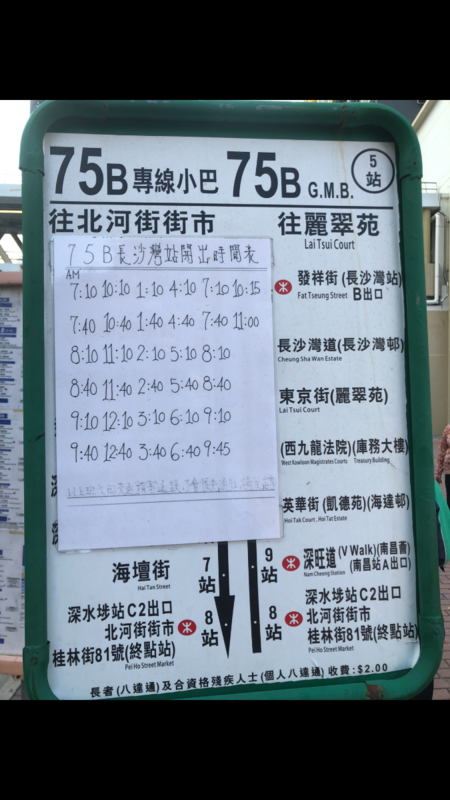 75B 專線小巴 75B G.M.B.
5站
往北河街街市
往麗翠苑
Lai Tsui Court
75B長沙灣站開出時間表
AM
7:10 10:10 1:10 4:10 7:10 10:15
7:40 10:40 1:40 4:40 7:40 11:00
8:10 11:10 2:10 5:10 8:10
8:40 11:40 2:40 5:40 8:40
9:10 12:10 3:10 6:10 9:10
9:40 12:40 3:40 6:40 9:45
發祥街(長沙灣站)
Fat Tseung Street B出口
長沙灣道(長沙灣邨)
Cheung Sha Wan Estate
東京街(麗翠苑)
Lai Tsui Court
(西九龍法院)(庫務大樓)
West Kowloon Magistrates Courts Treasury Building
英華街(凱德苑)(海達邨)
Hoi Tak Court , Hoi Tat Estate
9站
深旺道(V Walk)(南昌薈)
(南昌站A出口)
Nam Cheong Station
海壇街
Hai Tan Street
7站
深水埗站C2出口
北河街街市
桂林街81號(終點站)
Pei Ho Street Market
8站
8站
深水埗站C2出口
北河街街市
桂林街81號(終點站)
Pei Ho Street Market
長者(八達通)及合資格殘疾人士(個人八達通)收費:$2.00